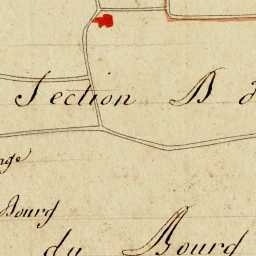 Section B
Bourg
du Bourg